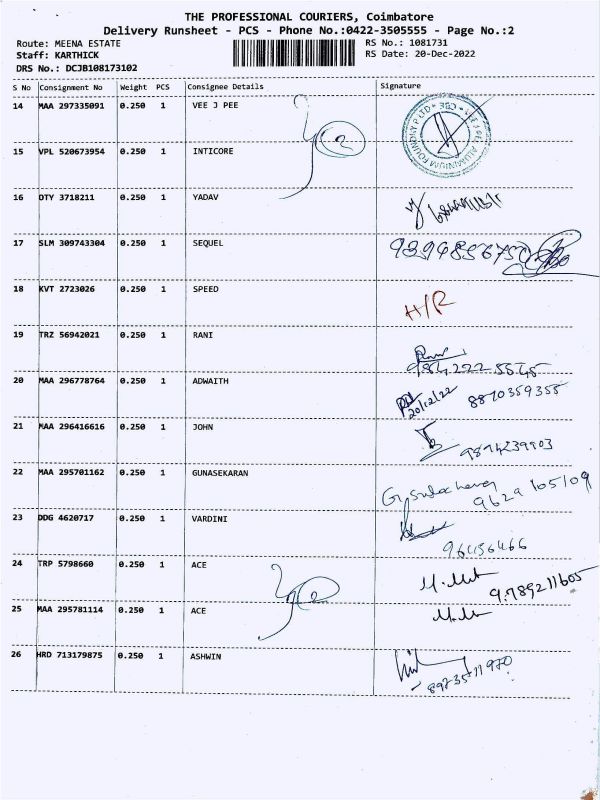 THE PROFESSIONAL COURIERS, Coimbatore
Delivery Runsheet - PCS - Phone No.:0422-3505555 - Page No.:2
Route: MEENA ESTATE
RS No.: 1081731
Staff: KARTHICK
RS Date: 20-Dec-2022
DRS No.: DCJB108173102
S No Consignment No Weight PCS Consignee Details Signature
14 MAA 297335091 0.250 1 VEE J PEE
15 VPL 520673954 0.250 1 INTICORE
16 DTY 3718211 0.250 1 YADAV
17 SLM 309743304 0.250 1 SEQUEL
18 KVT 2723026 0.250 1 SPEED
H/R
19 TRZ 56942021 0.250 1 RANI
20 MAA 296778764 0.250 1 ADWAITH
20/12/22 8870359355
21 MAA 296416616 0.250 1 JOHN
22 MAA 295701162 0.250 1 GUNASEKARAN
9629 105109
23 DDG 4620717 0.250 1 VARDINI
24 TRP 5798660 0.250 1 ACE
9789211605
25 MAA 295781114 0.250 1 ACE
26 HRD 713179875 0.250 1 ASHWIN